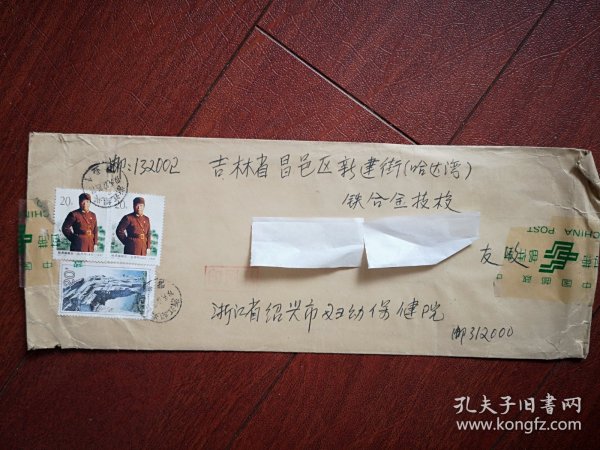 邮:132002
吉林省昌邑区新建街(哈达湾)
铁合金技校
友啟
浙江省绍兴市妇幼保健院
邮312000
20分
20
CHINA POST
中国邮政
CHINA
孔夫子旧书网
www.kongfz.com